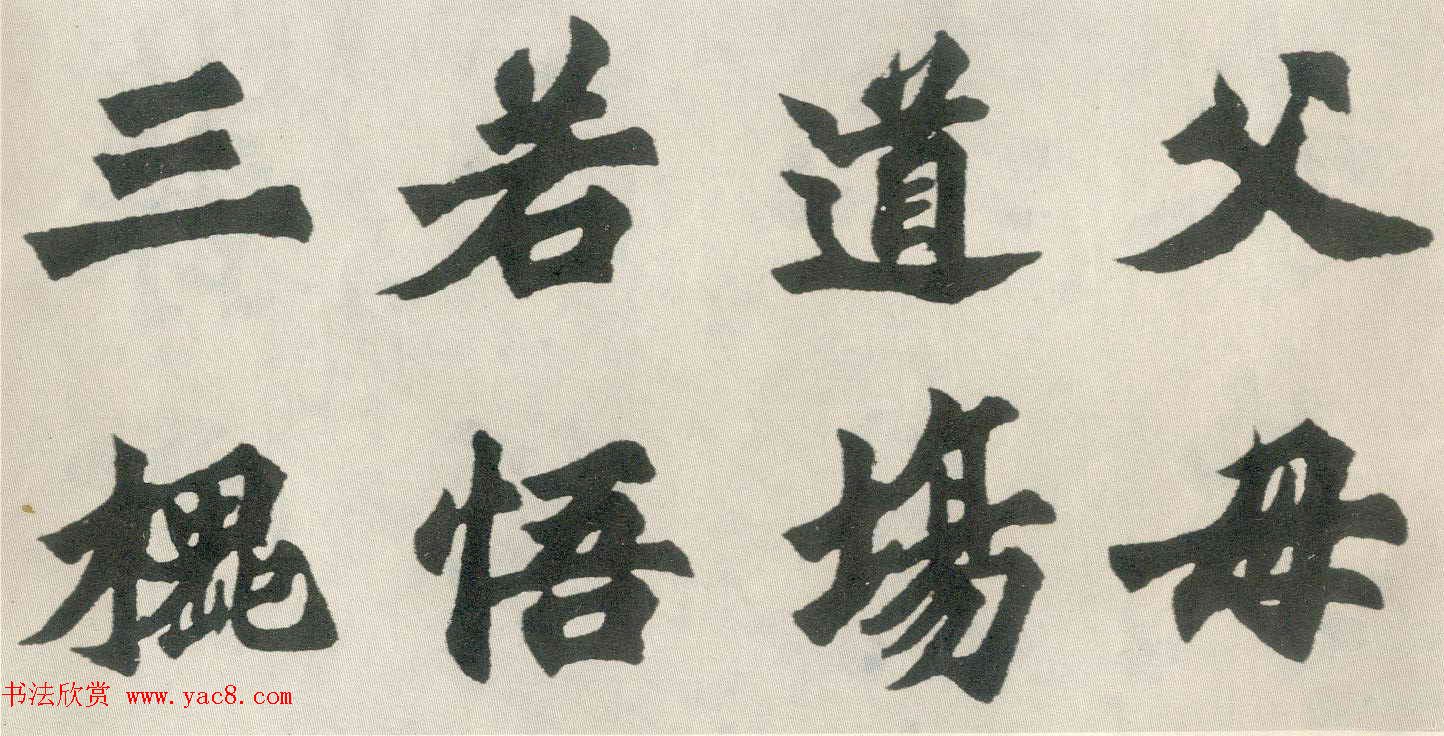 父母
道場
若悟
三槐
书法欣赏 www.yac8.com